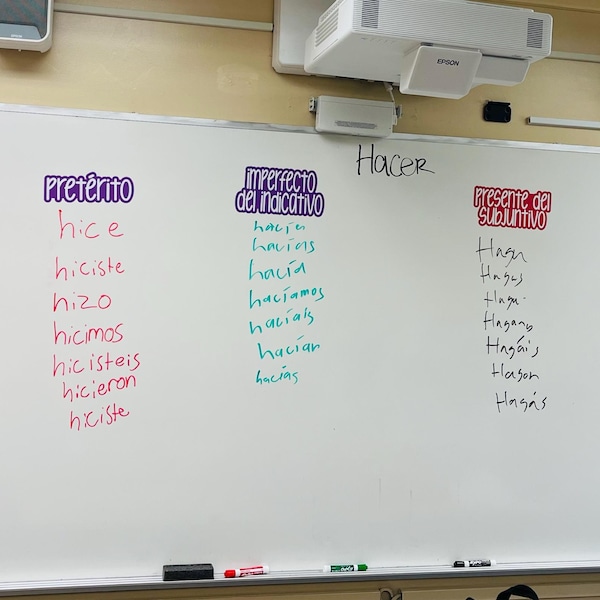 EPSON
Hacer
pretérito
hice
hiciste
hizo
hicimos
hicisteis
hicieron
hiciste
imperfecto
del indicativo
hacía
hacías
hacía
hacíamos
hacíais
hacían
hacías
presente del
subjuntivo
Haga
Hagas
Haga
Hagáis
Hagan
Hagás